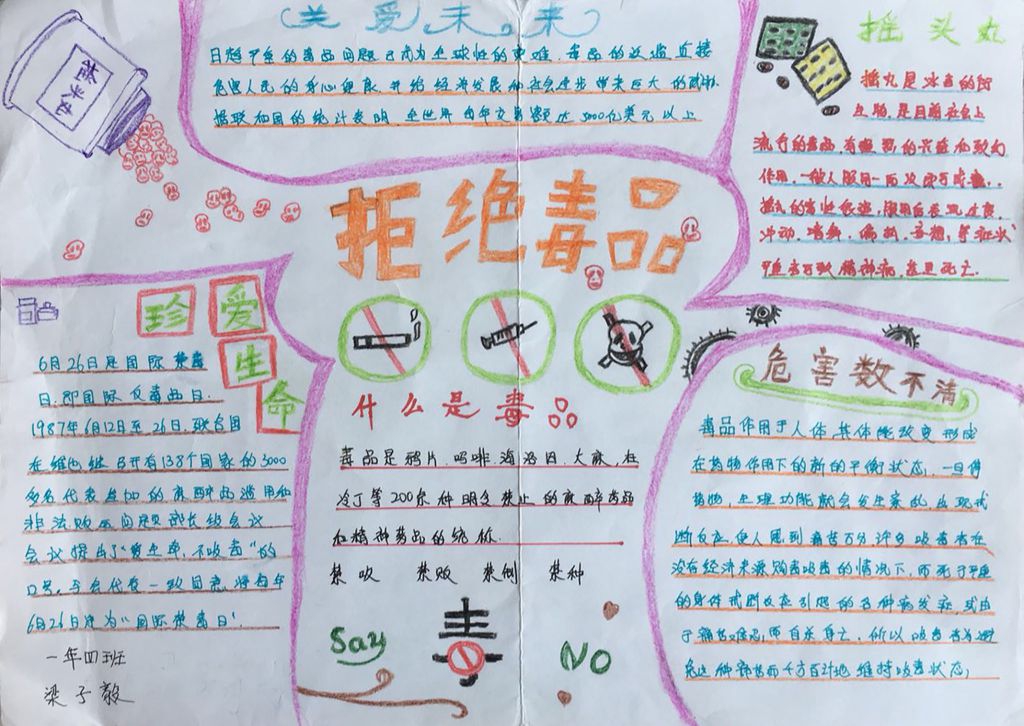 关爱未来
日趋严重的毒品问题已成为全球性的灾难,毒品的泛滥直接
危害人民的身心健康,并给经济发展和社会进步带来巨大的威胁.
据联和国的统计表明,全世界每年交易额达5000亿美元以上
摇头丸
摇头丸
摇丸是冰毒的衍
生物,是目前社会上
流行的毒品,有强烈的兴奋和致幻
作用.一般人服用一两次即可成瘾.
摇丸的毒性很强,服用后表现过度
冲动、嗜舞、偏执、妄想,等症状
严重者可致精神病,甚至死亡.
拒绝毒品
珍爱生命
6月26日是国际禁毒
日,即国际反毒品日.
1987年6月12日至26日,联合国
在维也纳召开有138个国家的3000
多名代表参加的麻醉品滥用和
非法贩运问题部长级会议
会议提出了"爱生命,不吸毒"的
口号,与会代表一致同意,将每年
6月26日定为"国际禁毒日".
一年四班
梁子毅
什么是毒品
毒品是鸦片、吗啡海洛因、大麻、杜
冷丁等200余种明令禁止的麻醉药品
和精神药品的统称.
禁吸 禁贩 禁制 禁种
Say 毒 NO
危害数不清
毒品作用于人体,其体能改变,形成
在药物作用下的新的平衡状态,一旦停
药物,生理功能就会发生紊乱,出现戒
断反应,使人感到痛苦万分许多吸毒者在
没有经济来源购毒吸毒的情况下,而死于严重
的身体戒断反应引起的各种病发症,或由
于痛苦难忍,而自杀身亡.所以吸毒者为避
免这种痛苦而千方百计地维持吸毒状态;